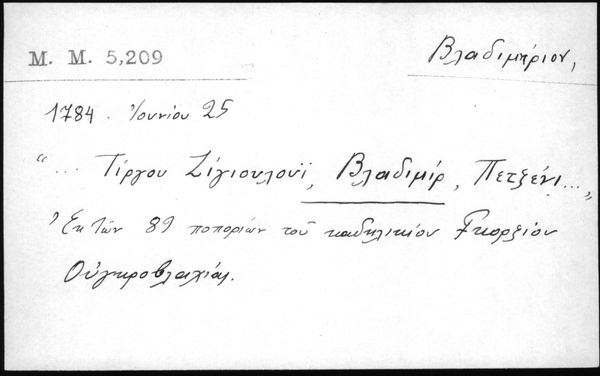 M. M. 5,209
Βλαδιμήριον,
1784. Ἰουνίου 25
“... Τίργου Ζίγιουλουϊ, Βλαδιμίρ, Πετζένι...„
Ἐκ τῶν 89 ποποριῶν τοῦ καδηλικίου Γκορζίου
Οὐγκροβλαχίας.